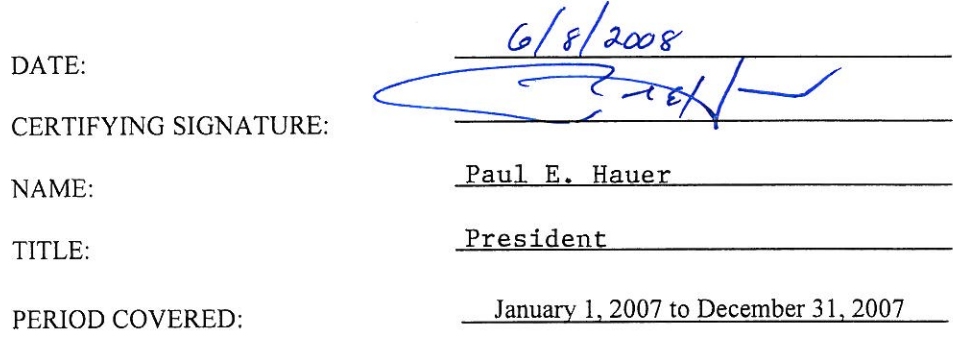 DATE: 6/8/2008
CERTIFYING SIGNATURE:
NAME: Paul E. Hauer
TITLE: President
PERIOD COVERED: January 1, 2007 to December 31, 2007